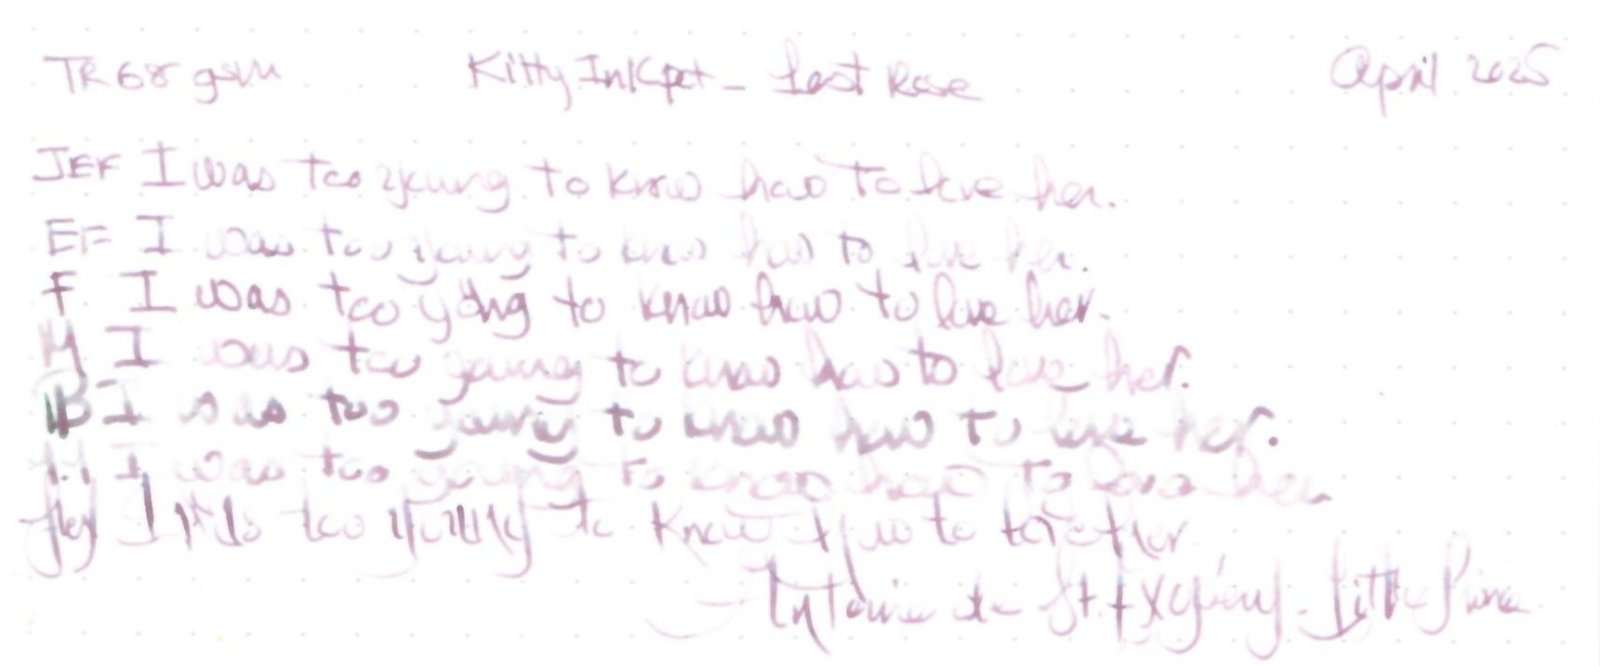 TR 68 gsm Kitty Inkpot - Last Rose April 2025
JEF I was too young to know how to love her.
EF I was too young to know how to love her.
F I was too yong to know how to love her.
M I was too young to know how to love her.
B I was too young to know how to love her.
I was too young to know how to love her
flex I was too young to know how to love her
Antoine de St Exupéry - Little Prince